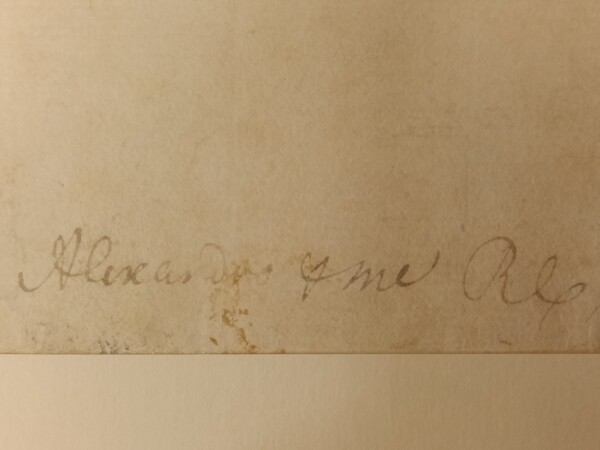 Alexandre yme Rex